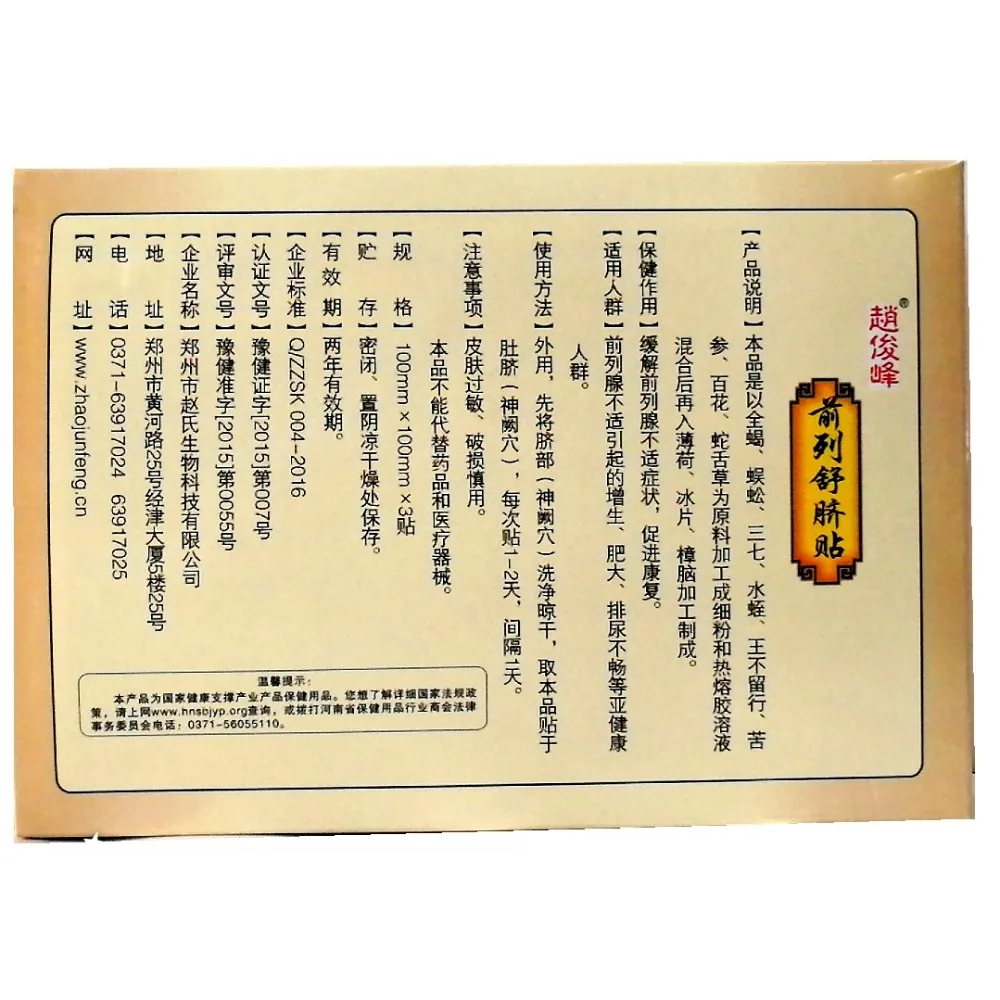 趙俊峰®
前列舒脐贴
【产品说明】本品是以全蝎、蜈蚣、三七、水蛭、王不留行、苦
参、百花、蛇舌草为原料加工成细粉和热熔胶溶液
混合后再入薄荷、冰片、樟脑加工制成。
【保健作用】缓解前列腺不适症状，促进康复。
【适用人群】前列腺不适引起的增生、肥大、排尿不畅等亚健康
人群。
【使用方法】外用，先将脐部（神阙穴）洗净晾干，取本品贴于
肚脐（神阙穴），每次贴1-2天，间隔1天。
【注意事项】皮肤过敏、破损慎用。
本品不能代替药品和医疗器械。
【规 格】100mm×100mm×3贴
【贮 存】密闭、置阴凉干燥处保存。
【有 效 期】两年有效期。
【企业标准】Q/ZZSK 004-2016
【认证文号】豫健证字[2015]第007号
【评审文号】豫健准字[2015]第0055号
【企业名称】郑州市赵氏生物科技有限公司
【地 址】郑州市黄河路25号经津大厦5楼25号
【电 话】0371-63917024 63917025
【网 址】www.zhaojunfeng.cn
温馨提示：
本产品为国家健康支撑产业产品保健用品。您想了解详细国家法规政
策，请上网www.hnsbjyp.org查询，或拨打河南省保健用品行业商会法律
事务委员会电话：0371-56055110。